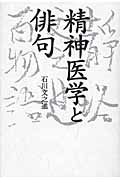 精神医学と
俳句
石川文之進
百物語